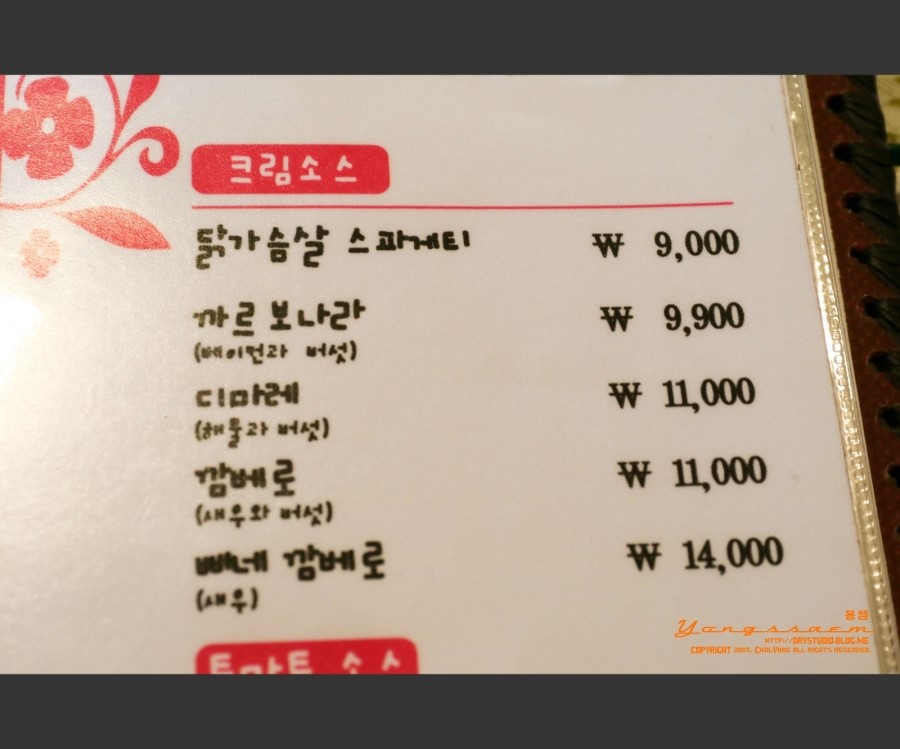 크림소스
닭가슴살 스파게티 ₩ 9,000
까르보나라 ₩ 9,900
(베이컨과 버섯)
디마레 ₩ 11,000
(해물과 버섯)
깜베로 ₩ 11,000
(새우와 버섯)
빠네 깜베로 ₩ 14,000
(새우)
토마토 소스
용쌤
Yongssaem
HTTP://DRYSTUDIO.BLOG.ME
COPYRIGHT 2013. CHOI.YONG ALL RIGHTS RESERVED.